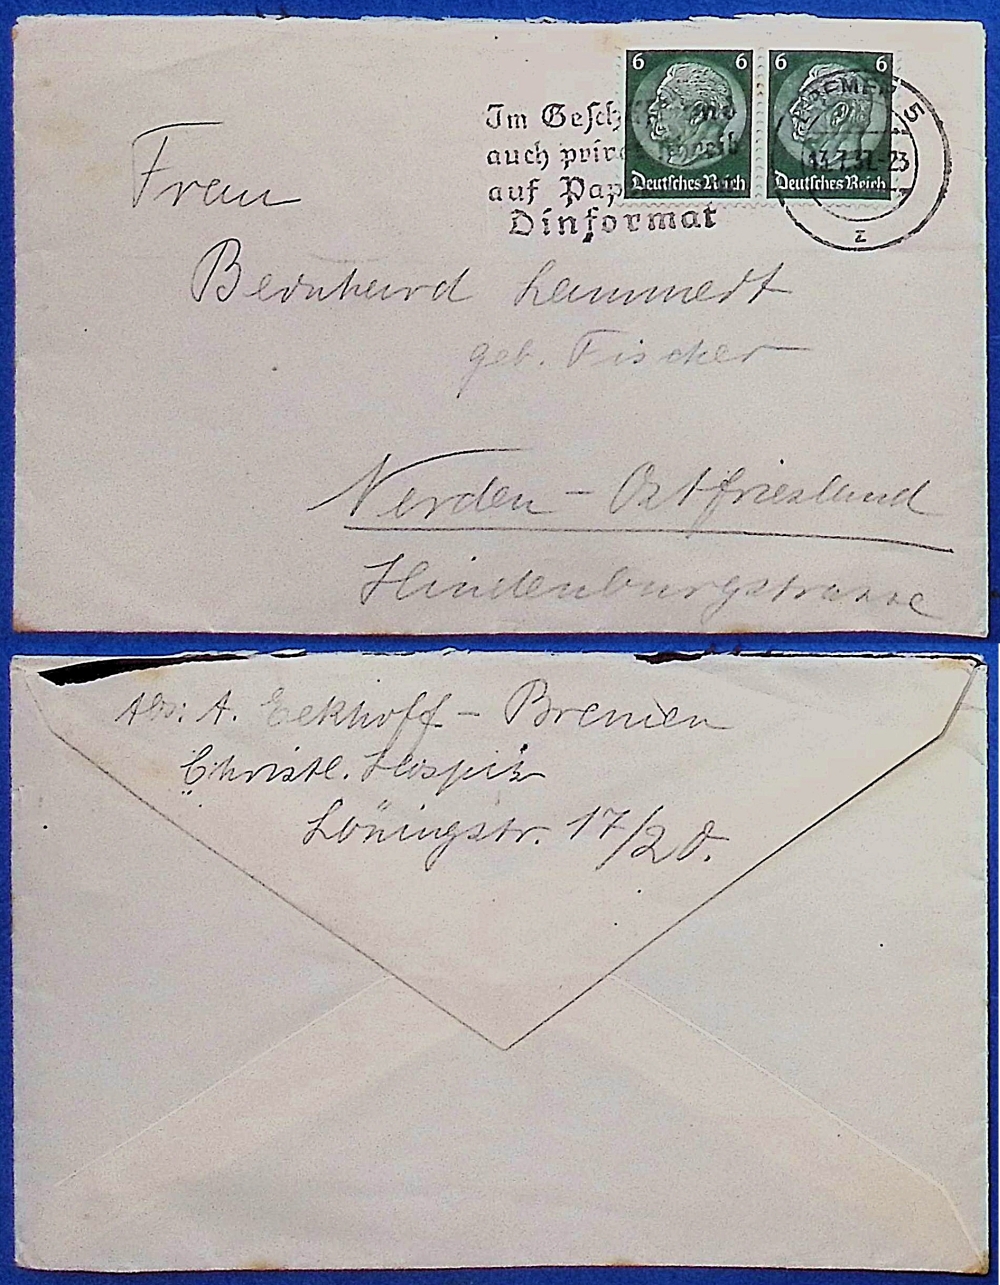 6 6 6 6
Im Gesch und
auch priv schreib
auf Pap
Dinformat
Deutsches Reich Deutsches Reich
BREMEN 5
13.7.37.-23
z
Frau
Bernhard Lammert
geb. Fischer
Norden - Ostfriesland
Hindenburgstrasse
Abs: A. Eekhoff - Bremen
Christl. Hospiz
Löningstr. 17/20.